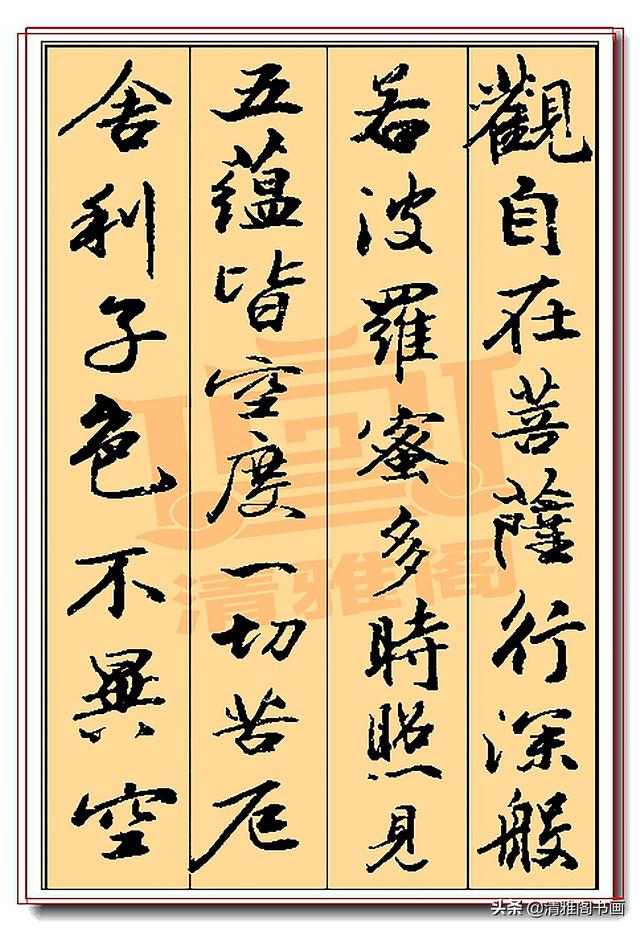 觀自在菩薩行深般
若波羅蜜多時照見
五蘊皆空度一切苦厄
舍利子色不異空
清雅阁
头条@清雅阁书画